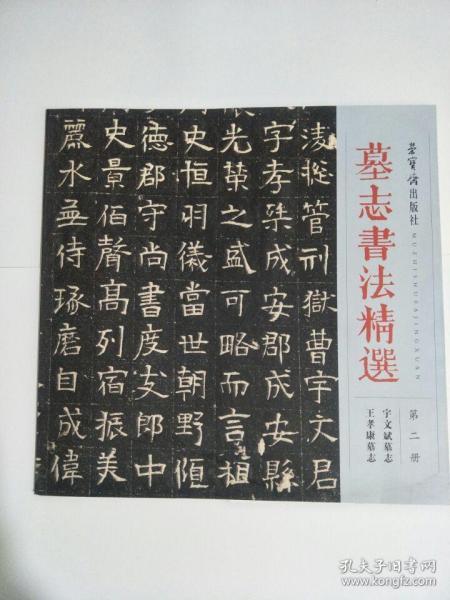 榮寶齋出版社
MUZHISHUFAJINGXUAN
墓志書法精選
第二册
宇文斌墓志
王孝康墓志
淩管刑獄曹宇文君
字孝成安郡成安縣
光榮之盛可略而言祖
史恒羽儀當世朝野恒
德郡守尚書度支郎中
史景佰聲高列宿振美
麗水並待琢磨自成偉
孔夫子旧书网
www.kongfz.com